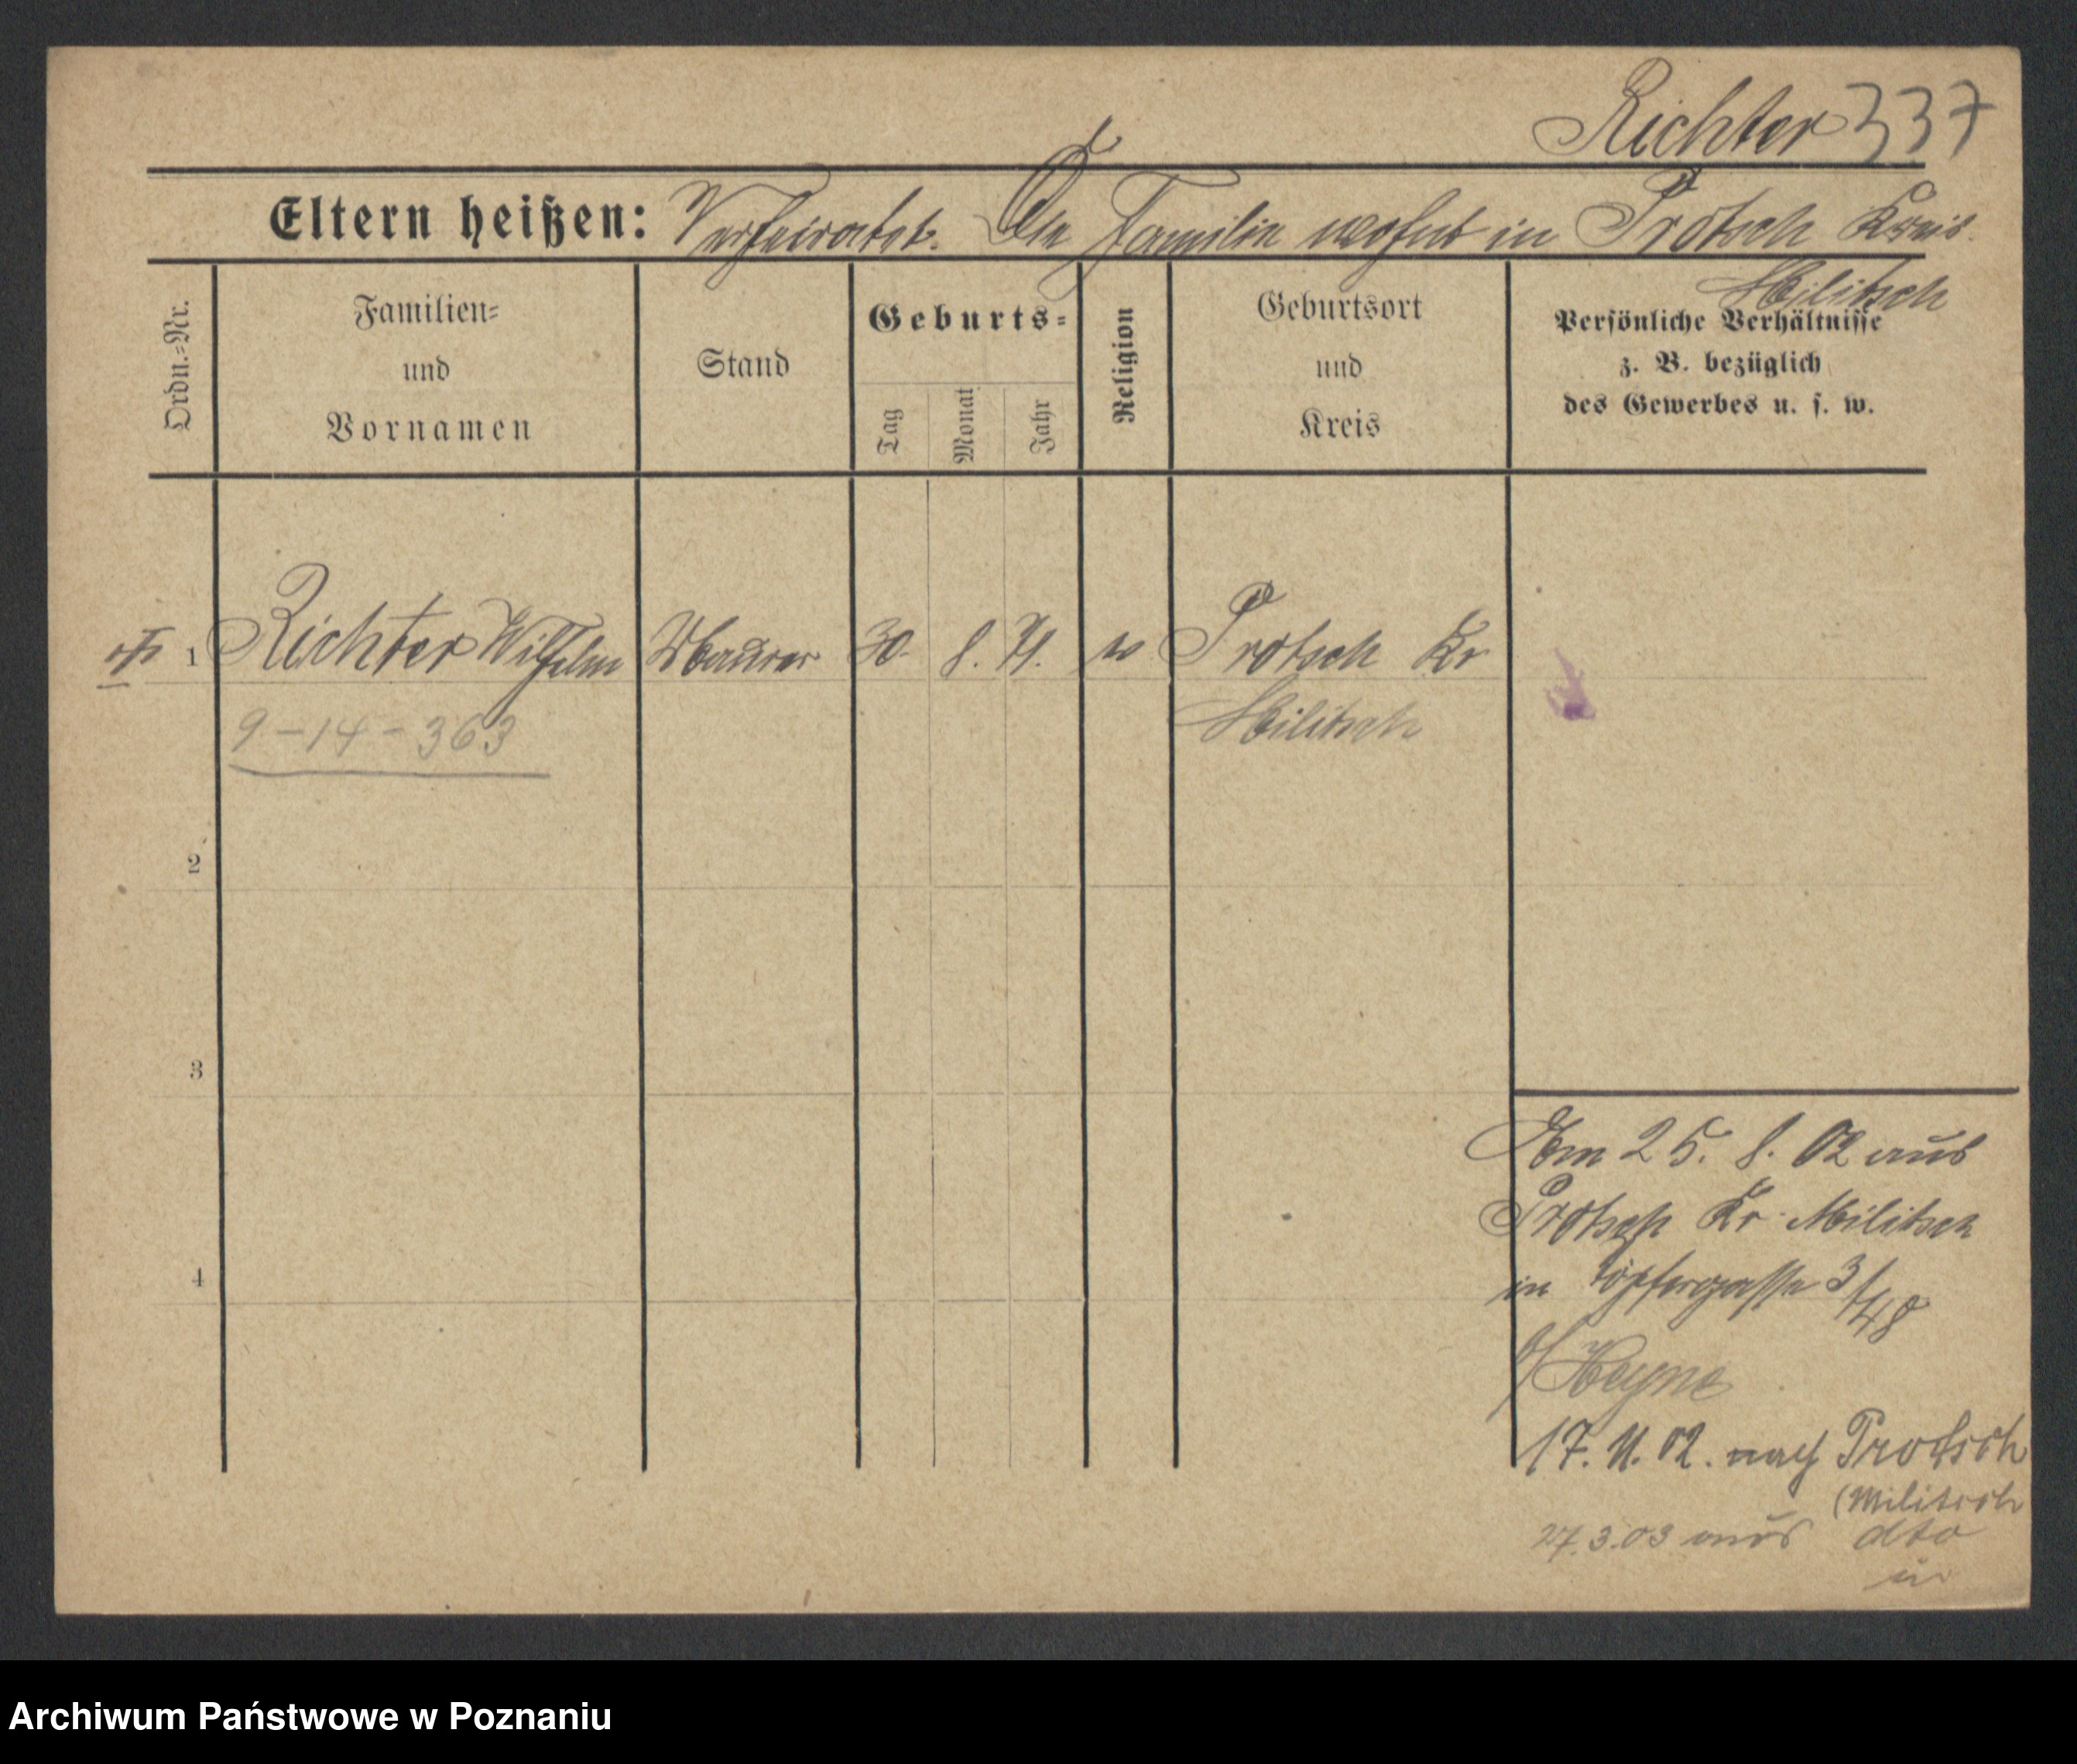 Richter 337
Eltern heißen: Verheiratet. Die Familie wohnt in Protsch Kreis
Militsch
Ordn.-Nr.
Familien-
und
Vornamen
Stand
Geburts-
Tag
Monat
Jahr
Religion
Geburtsort
und
Kreis
Persönliche Verhältnisse
z. B. bezüglich
des Gewerbes u. s. w.
1 Richter Wilhelm Maurer 30. 8. 71. Protsch Kr
Militsch
9-14-363
2
3
4
Am 25. 8. 02 aus
Protsch Kr. Militsch
in Töpfergasse 3/48
b/Heyne
17. 11. 02. nach Protsch
(Militsch
27.3.03 aus dto
in
Archiwum Państwowe w Poznaniu